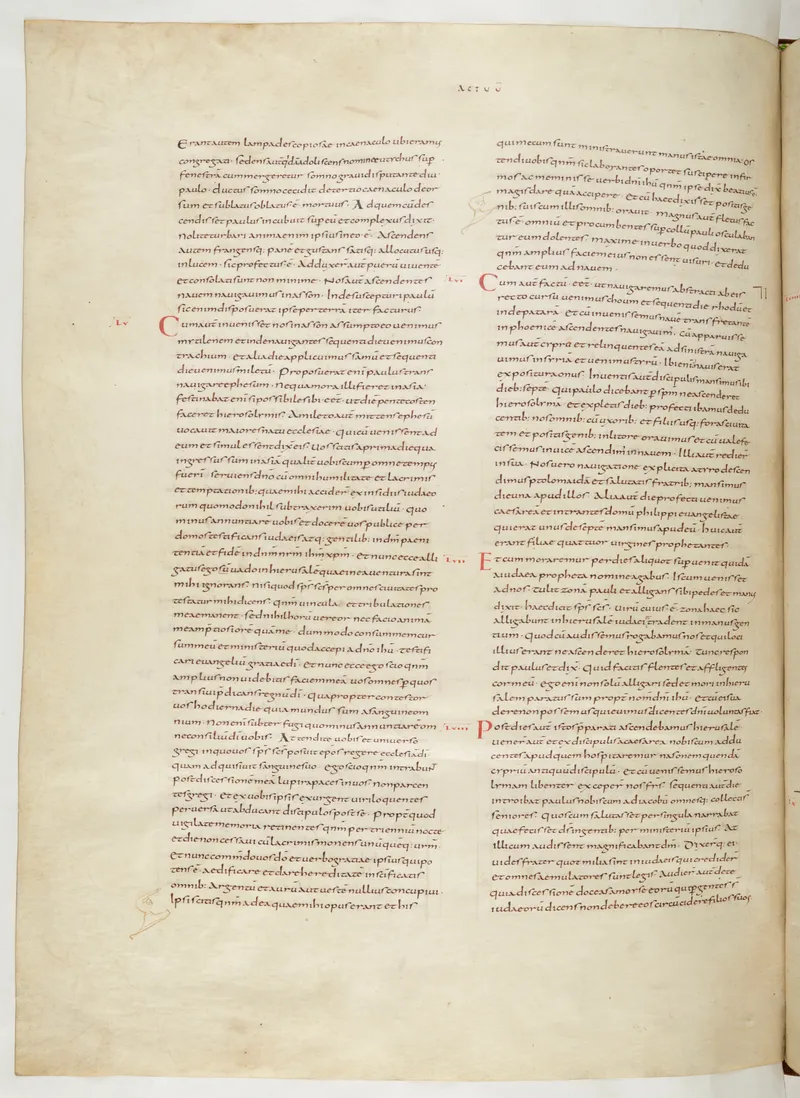 ACTUU
Erant autem lampades copiosae incaenaculo ubieramus
congregati· sedens autē quidā adoliscens nomine eutychus sup
fenestrā cum mergeretur somno graui disputante diu
paulo· ductus somno cecidit de tertio caenaculo deor
sum et sublatus oblatus ē mortuus· Ad quem cū des
cendisset paulus incubuit supeū et complexus dixit·
Nolite turbari anima enim ipsius ineo ē· Ascendens
autem frangensq; panē et gustans satisq; allocutus usq;
inlucem· sic profectus ē· Adduxer aut puerū uiuentē
et consolati sunt non minime· Nos aut ascendentes
nauem nauigauimus inasson· Inde suscepturi paulū
sic enim disposuerat ipse per terrā iter facturus·
LV
Cum aut inuenisset nos inasson assumpto eo uenimus
mytilenem et inde nauigantes sequenti die uenimus con
tra chium· et alia die applicuimus samū et sequenti
die uenimus miletū· Proposuerat enī paulus trans
nauigare ephesum· nequa mora illi fieret inasia·
festinabat enī si possibile sibi eet· ut die pentecosten
faceret hierosolymis· A mileto aut mittens ephesū
uocauit maiores natu ecclesiae· qui cū uenissent ad
eum et simul essent dixit eis· Uos scitis a prima die qua
ingressus sum inasiā qualit uobiscum p omne temp;
fuerī· seruiens dno cū omni humilitate et lacrimis
et temptationib; quae mihi accider ex insidiis iudaeo
rum quomodo nihil subtraxerim uobis utiliū· quo
minus annuntiarē uobis et docerē uos publice per
domos testificans iudaeis atq; gentilib; indm paeni
tentiā et fidē indnm nrm ihm xpm· et nunc ecce alli
gatus ego spū uado in hierusalē quae inea uentura sint
mihi ignorans· nisi quod sps scs per omnes ciuitates pro
testatur mihi dicens· qnm uincula et tribulationes
me manent· sed nihil horū uereor nec facio animā
meam ptiosiore quā me· dum modo consummem cur
sum meū et ministeriū quod accepi a dno ihu· testifi
cari euangeliū gratiae di· et nunc ecce ego scio qnm
amplius non uidebitis faciem meā uos omnes p quos
transiui pdicans regnū di· quapropter contestor
uos hodierna die quia mundus sum a sanguine om
nium· non enī subter fugi quominus annuntiarē om
ne consiliū di uobis· Attendite uobis et uniuerso
gregi inquo uos sps scs posuit epos regere ecclesiā di
quam adquisiuit sanguine suo· ego scio qnm intrabūt
post discessionē meā lupi rapaces in uos non parcen
tes gregi· et ex uobis ipsis exurgent uiri loquentes
peruersa ut abducant discipulos post se· Propt quod
uigilate memoria retinentes qnm per trienniū nocte
et die non cessaui cū lacrimis monens unūquēq; urm·
et nunc commdo uos do et uerbo gratiae ipsius qui po
tens ē· aedificare et dare hereditatē in scificatis
omnib; Argentū et aurū aut uestē nullius concupiui·
Ipsi scitis qnm ad ea quae mihi opus erant et his
qui mecum sunt ministrauerunt manus istae omnia os
tendi uobis qnm sic laborantes oportet suscipere infir
mos ac meminisse uerbi dni ihu qnm ipse dix beatius ē
magis dare quā accipere· et cū haec dixisset positis ge
nib; suis cum illis omnib; orauit· magnus aut fletus fac
tus ē omniū et procumbentes sup collū pauli osculaban
tur eum dolentes· maxime in uerbo quod dixerat
qnm amplius faciem eius non essent uisuri· et dedu
cebant eum ad nauem·
LVI
Cum aut factū· eet· ut nauigaremus abstracti ab eis
recto cursu uenimus choum et sequenti die rhodū et
inde patarā· et cū inuenissemus nauē transfretantē
in phoenicē ascendentes nauigauim· cū apparuisse
mus aut cypru et relinquentes eā ad sinistrā nauiga
uimus in syriā et uenim tyrū· Ibi enī nauis erat
expositura onus· Inuentis aut discipulis mansimus ibi
dieb; septē· qui paulo dicebant p spm ne ascenderet
hierosolymā· et expletis dieb; profecti ibamus dedu
centib; nos omnib· cū uxorib; et filiis usq; foras ciuita
tem et positis genib; in litore orauimus et cū ualefe
cissemus inuicē ascendim in nauem· Illi aut redier
in sua· Nos uero nauigatione explicita a tyro descen
dimus ptolomaidā et salutatis fratrib; mansimus
die una apud illos· Alia aut die profecti uenimus
caesareā et intrantes domū philippi euangelistae·
qui erat unus de septē mansimus apud eū· huic aut
erant filiae quattuor uirgines prophetantes·
LVII
Et cum moraremur per dies aliquot sup uenit quidā
a iudaea propheta nomine agabus· Is cum uenisset
ad nos· tulit zonā pauli et alligans sibi pedes et man;
dixit· haec dicit sps scs· Uirū cuius ē· zona haec sic
alligabunt in hierusalē iudaei et tradent in manus gen
tium· Quod cū audissemus rogabamus nos et qui loci
illius erant ne ascenderet hierosolymā· tunc respon
dit paulus et dix· Quid facitis flentes et affligentes
cor meū· ego enī non solū alligari sed et mori in hieru
salem paratus sum propt nom dni ihu· et cū ei sua
dere non possemus quieuimus dicentes dni uoluntas fiat
LVIII
Post dies aut istos pparati ascendebamus hierusalē·
uener aut et ex discipulis a caesarea nobiscum addu
centes apud quem hospitaremur nasonem quendā
cypriū antiquū discipulū· et cū uenissemus hieroso
lymam libenter exceper nos frs· sequenti aut die
introibat paulus nobiscum ad iacobū omnesq; collecti s
seniores· quos cum salutasset per singula narrabat
quae fecisset ds in gentib; per ministeriū ipsius· At
illi cum audissent magnificabant dm· Dixerq; ei·
uides frater quot milia sint in iudaeis qui credider
et omnes aemulatores sunt legis· Audier aut de te
quia discessionē doceas a mose eorū qui p gentes s
iudaeorū dicens non debere eos circūcidere filios suos